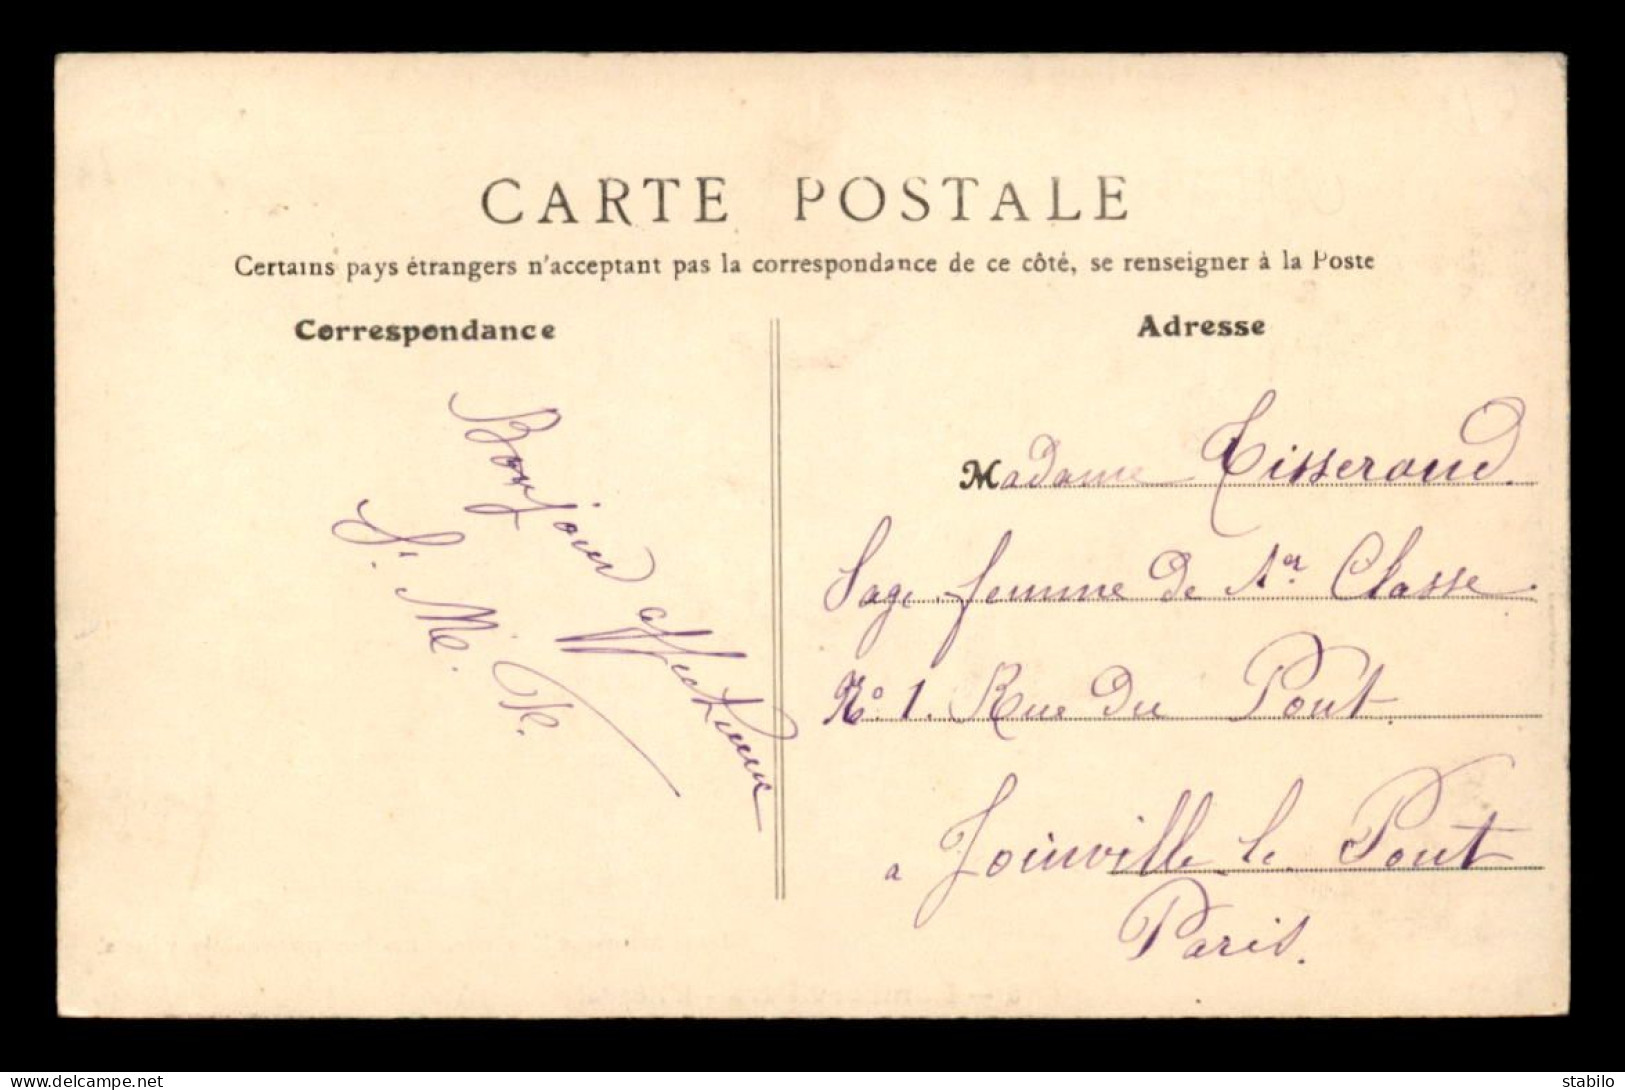 CARTE POSTALE
Certains pays étrangers n'acceptant pas la correspondance de ce côté, se renseigner à la Poste
Correspondance
Bonjour affectueux
Adresse
Madame Tisserand.
Sage femme de 1er Classe.
No. 1. Rue du Pont.
a Joinville le Pont
Paris.
delcampe.net
stabilo